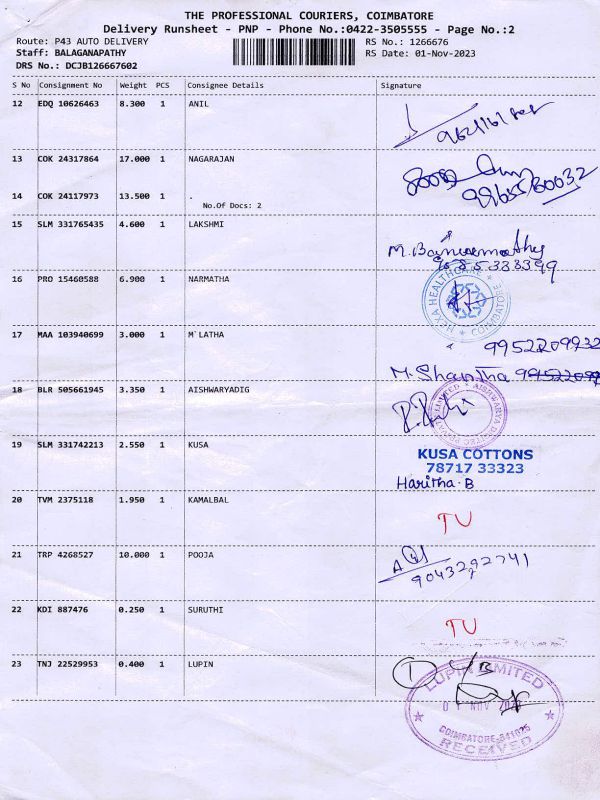 THE PROFESSIONAL COURIERS, COIMBATORE
Delivery Runsheet - PNP - Phone No.:0422-3505555 - Page No.:2
Route: P43 AUTO DELIVERY
Staff: BALAGANAPATHY
DRS No.: DCJB126667602
RS No.: 1266676
RS Date: 01-Nov-2023
S No Consignment No Weight PCS Consignee Details Signature
12 EDQ 10626463 8.300 1 ANIL
13 COK 24317864 17.000 1 NAGARAJAN
14 COK 24117973 13.500 1 .
No.Of Docs: 2
15 SLM 331765435 4.600 1 LAKSHMI
16 PRO 15460588 6.900 1 NARMATHA
HEXA HEALTHCARE COIMBATORE
17 MAA 103940699 3.000 1 M`LATHA
M. Shantha
18 BLR 505661945 3.350 1 AISHWARYADIG
19 SLM 331742213 2.550 1 KUSA
KUSA COTTONS
78717 33323
Haritha. B
20 TVM 2375118 1.950 1 KAMALBAL
TU
21 TRP 4268527 10.000 1 POOJA
9043292741
22 KDI 887476 0.250 1 SURUTHI
TU
23 TNJ 22529953 0.400 1 LUPIN
LUPIN LIMITED
COIMBATORE-641025
RECEIVED